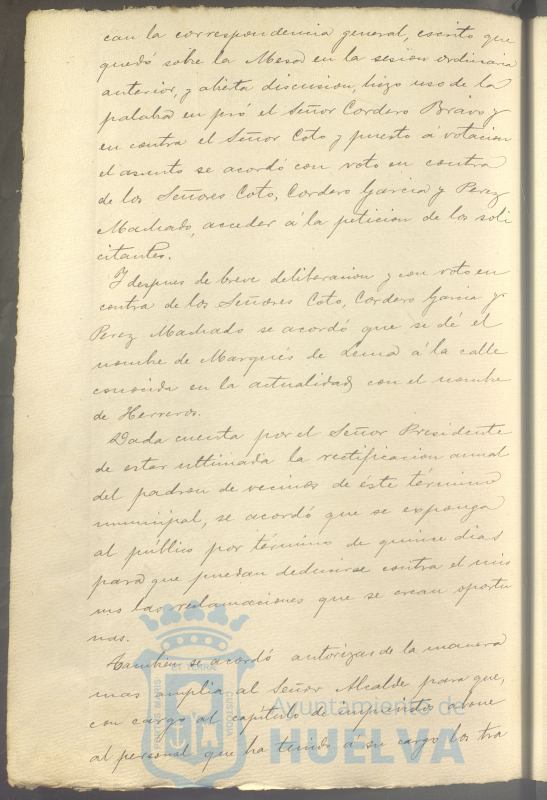 con la correspondencia general, escrito que
quedó sobre la Mesa en la sesion ordinaria
anterior, y abierta discusion, hizo uso de la
palabra en pró el Señor Cordero Bravo y
en contra el Señor Coto y puesto á votacion
el asunto se acordó con voto en contra
de los Señores Coto, Cordero Garcia y Perez
Machado, acceder á la peticion de los soli
citantes.
Y despues de breve deliberacion y con voto en
contra de los Señores Coto, Cordero Garcia y
Perez Machado se acordó que se dé el
nombre de Marqués de Lema á la calle
conocida en la actualidad con el nombre
de Herreros.
Dada cuenta por el Señor Presidente
de estar ultimada la rectificacion anual
del padron de vecinos de éste término
municipal, se acordó que se exponga
al público por término de quince dias
para que puedan deducirse contra el mis
mo las reclamaciones que se crean oportu
nas.
Tambien se acordó autorizar de la manera
mas amplia al Señor Alcalde para que,
con cargo al capítulo de imprevistos abone
al personal que ha tenido á su cargo los tra
PORTUS MARIS
ET TERRAE
CUSTODIA
Ayuntamiento de
HUELVA